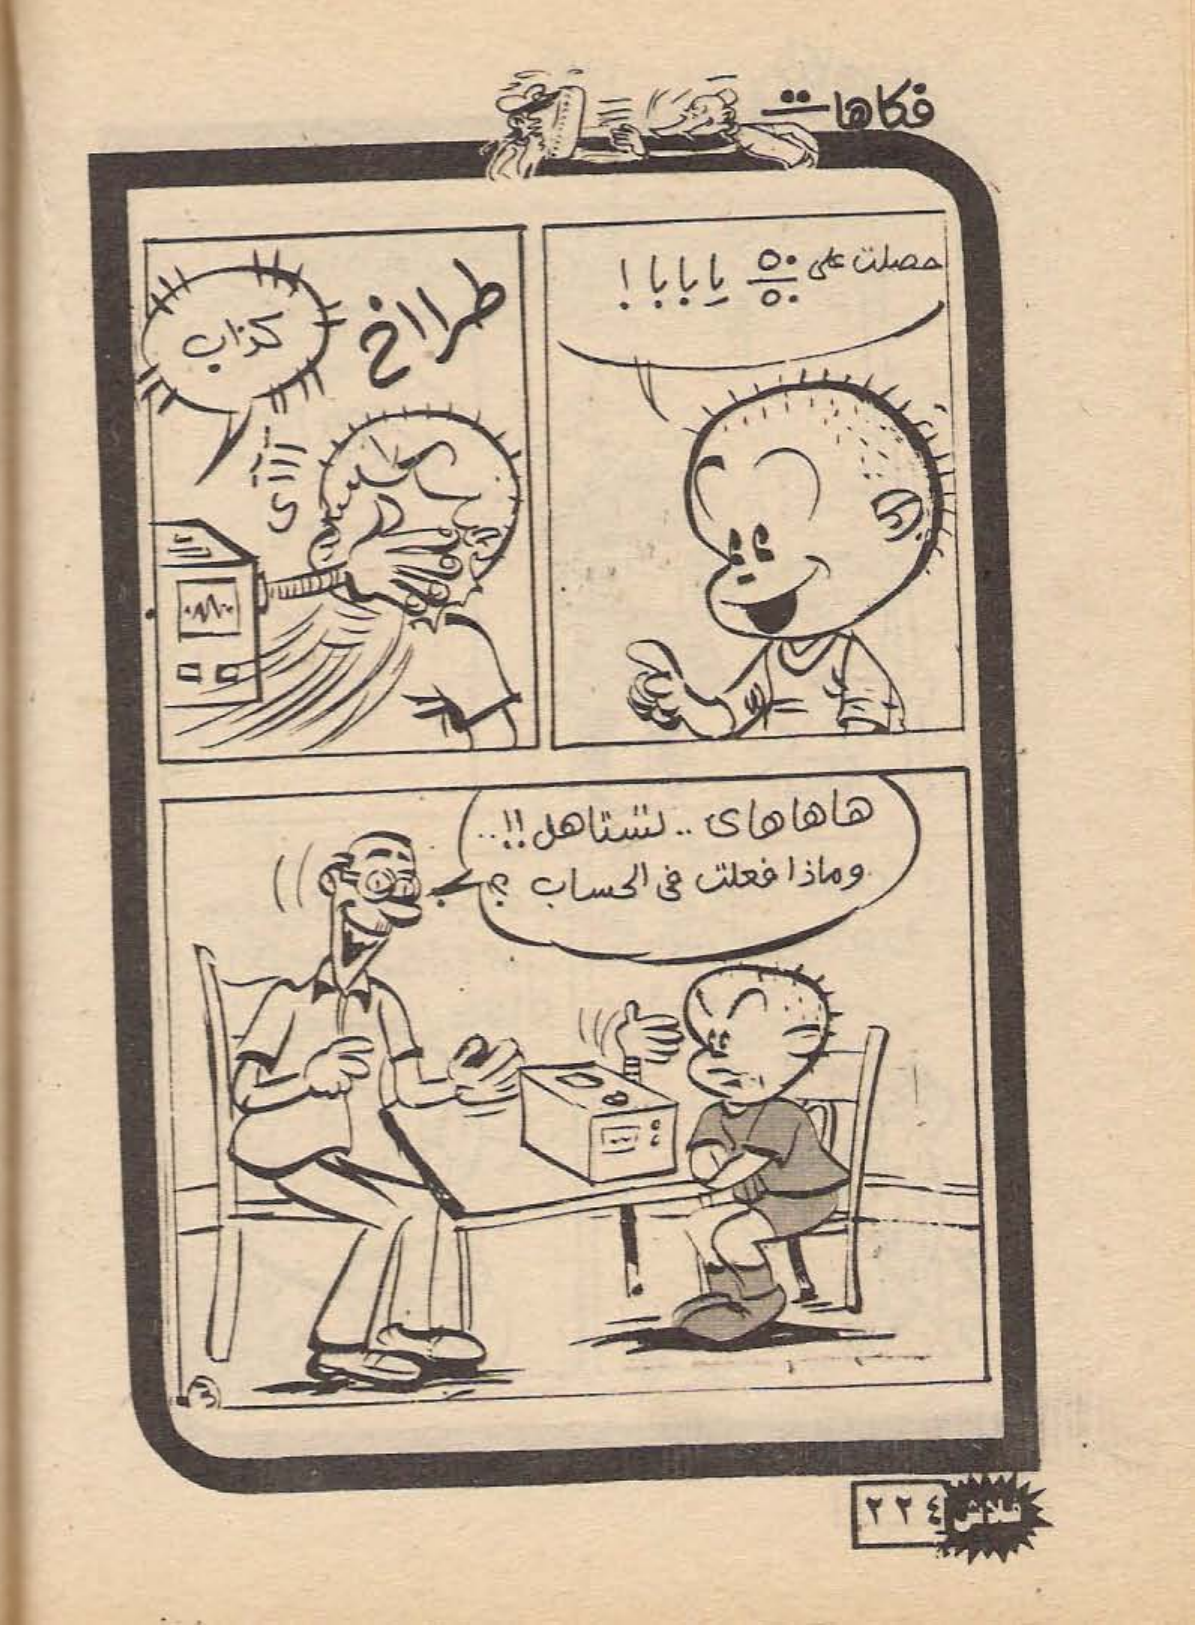 فكاهات
حصلت على ٥٠/٥٠ يا بابا !
طرااخ
كذاب
آآآى
هاهاهاى .. تستاهل !! ..
وماذا فعلت فى الحساب ؟
٣
فلاش
٢٢٤